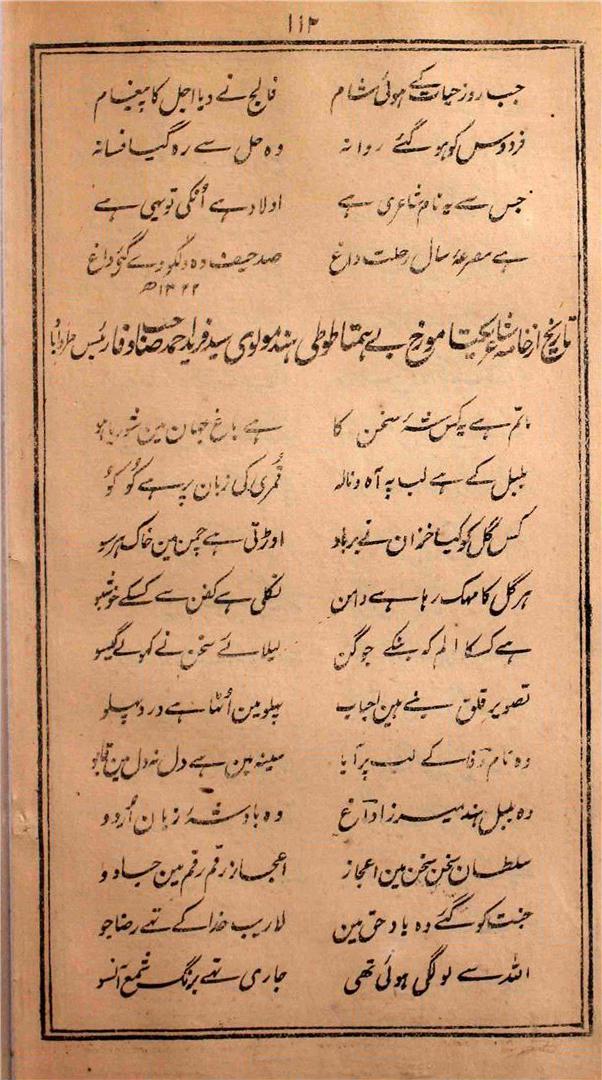 ۱۱۳
جب روز حیات کے ہوئی شام فالج نے دیا اجل کا پیغام
فردوس کو ہو گئے روانہ وہ حل سے رہ گیا فسانہ
جس سے یہ نام شاعری ہے اولاد ہے اُنکی تو یہی ہے
ہے مصرعۂ سال رحلت داغ صد حیف وہ دلکو دے گئی داغ
۱۳۲۲ھ
تاریخ از خامہ شاعر یکتا مورخ بے ہمتا طوطی ہند مولوی سید فرید احمد صاحب وفا رئیس
ماتم ہے یہ کس شہ سخن کا ہے باغ جہان مین شور یا ہو
بلبل کے ہے لب پہ آہ و نالہ قُمری کی زبان پر ہے کُو کُو
کس گل کو کیا خزان نے برباد اوڑتی ہے چمن مین خاک ہر سو
ہر گل کا مہک رہا ہے دامن نکلی ہے کفن سے کسکے خوشبو
ہے کسکا الم کہ بنکے جوگن لیلائے سخن نے کھولے گیسو
تصویر قلق بنے ہین احباب پہلو مین اُٹھا ہے درد پہلو
وہ نام وفا کے لب پر آیا سینہ مین ہے دل نہ دل مین قابو
وہ بلبل ہند میرزا داغ وہ بادشہ زبان اُردو
سلطان سخن سخن مین اعجاز اعجاز رقم رقم مین جادو
جنت کو گئے وہ یاد حق مین لاریب خدا کے تھے رضا جو
اللہ سے لو لگی ہوئی تھی جاری تھے برنگ شمع آنسو